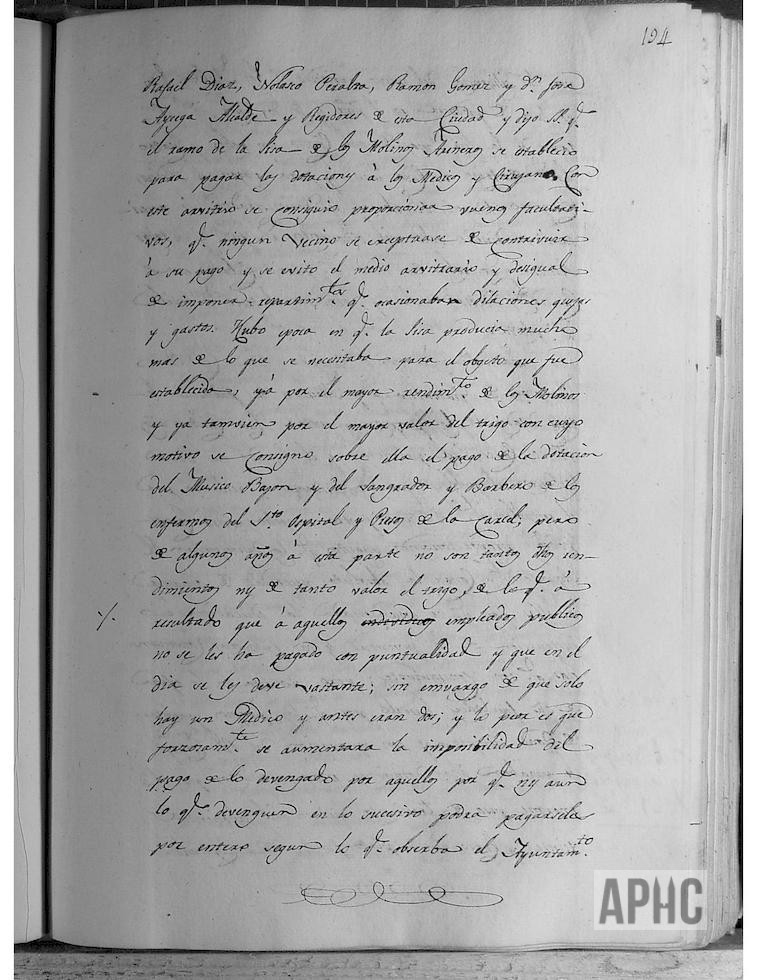 194
Rafael Diaz, Nolasco Peralta, Ramon Gomez y Dn. Jose
Ayega Alcalde y Regidores de esta Ciudad y dijo S. qe.
el ramo de la sisa de los Molinos Arineros se establecio
para pagar las dotaciones à los Medicos y Cirujano. Con
este arvitrio se consiguio proporcionar vuenos facultati-
vos, qe. ningun vecino se exceptuase de contrivuir
à su pago y se evito el medio arvitrario y desigual
de imponer repartimtos. qe. ocasionaban dilaciones quejas
y gastos. Hubo epoca en qe. la sisa producia mucho
mas de lo que se necesitaba para el objeto que fue
establecida, yà por el mayor rendimto. de los Molinos
y ya tamvien por el mayor valor del trigo con cuyo
motivo se consigno sobre ella el pago de la dotacion
del Musico Bajon y del Sangrador y Barbero de los
enfermos del Sto. Ospital y Presos de la Carcel; pero
de algunos años à esta parte no son tantos dhos ren-
dimientos ny de tanto valor el trigo, de lo qe. à
resultado que à aquellos individuos empleados publicos
no se les ha pagado con puntualidad y que en el
dia se les deve vastante; sin emvargo de que solo
hay un Medico y antes eran dos; y lo peor es que
forzosamte. se aumentara la imposibilidad del
pago de lo devengado por aquellos por qe. ny aun
lo qe. devenguen en lo sucesivo podra pagarseles
por entero segun lo qe. obserba el Ayuntamto.
APHC